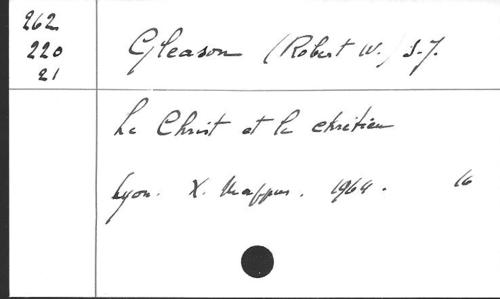 262
220
21
Gleason (Robert W.) S.J.
Le Christ et le chrétien
Lyon. X. Mappus. 1964. 16